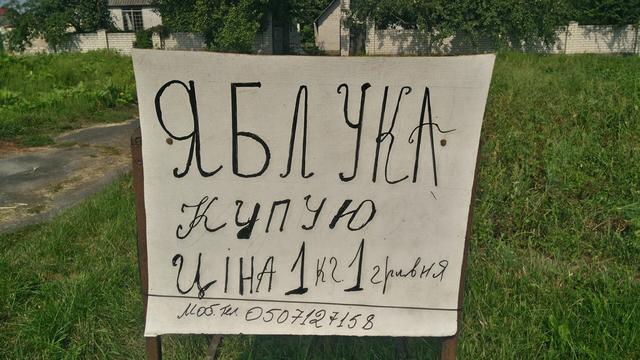 ЯБЛУКА
КУПУЮ
ЦІНА 1 кг 1 гривня
Моб.тел 0507127158